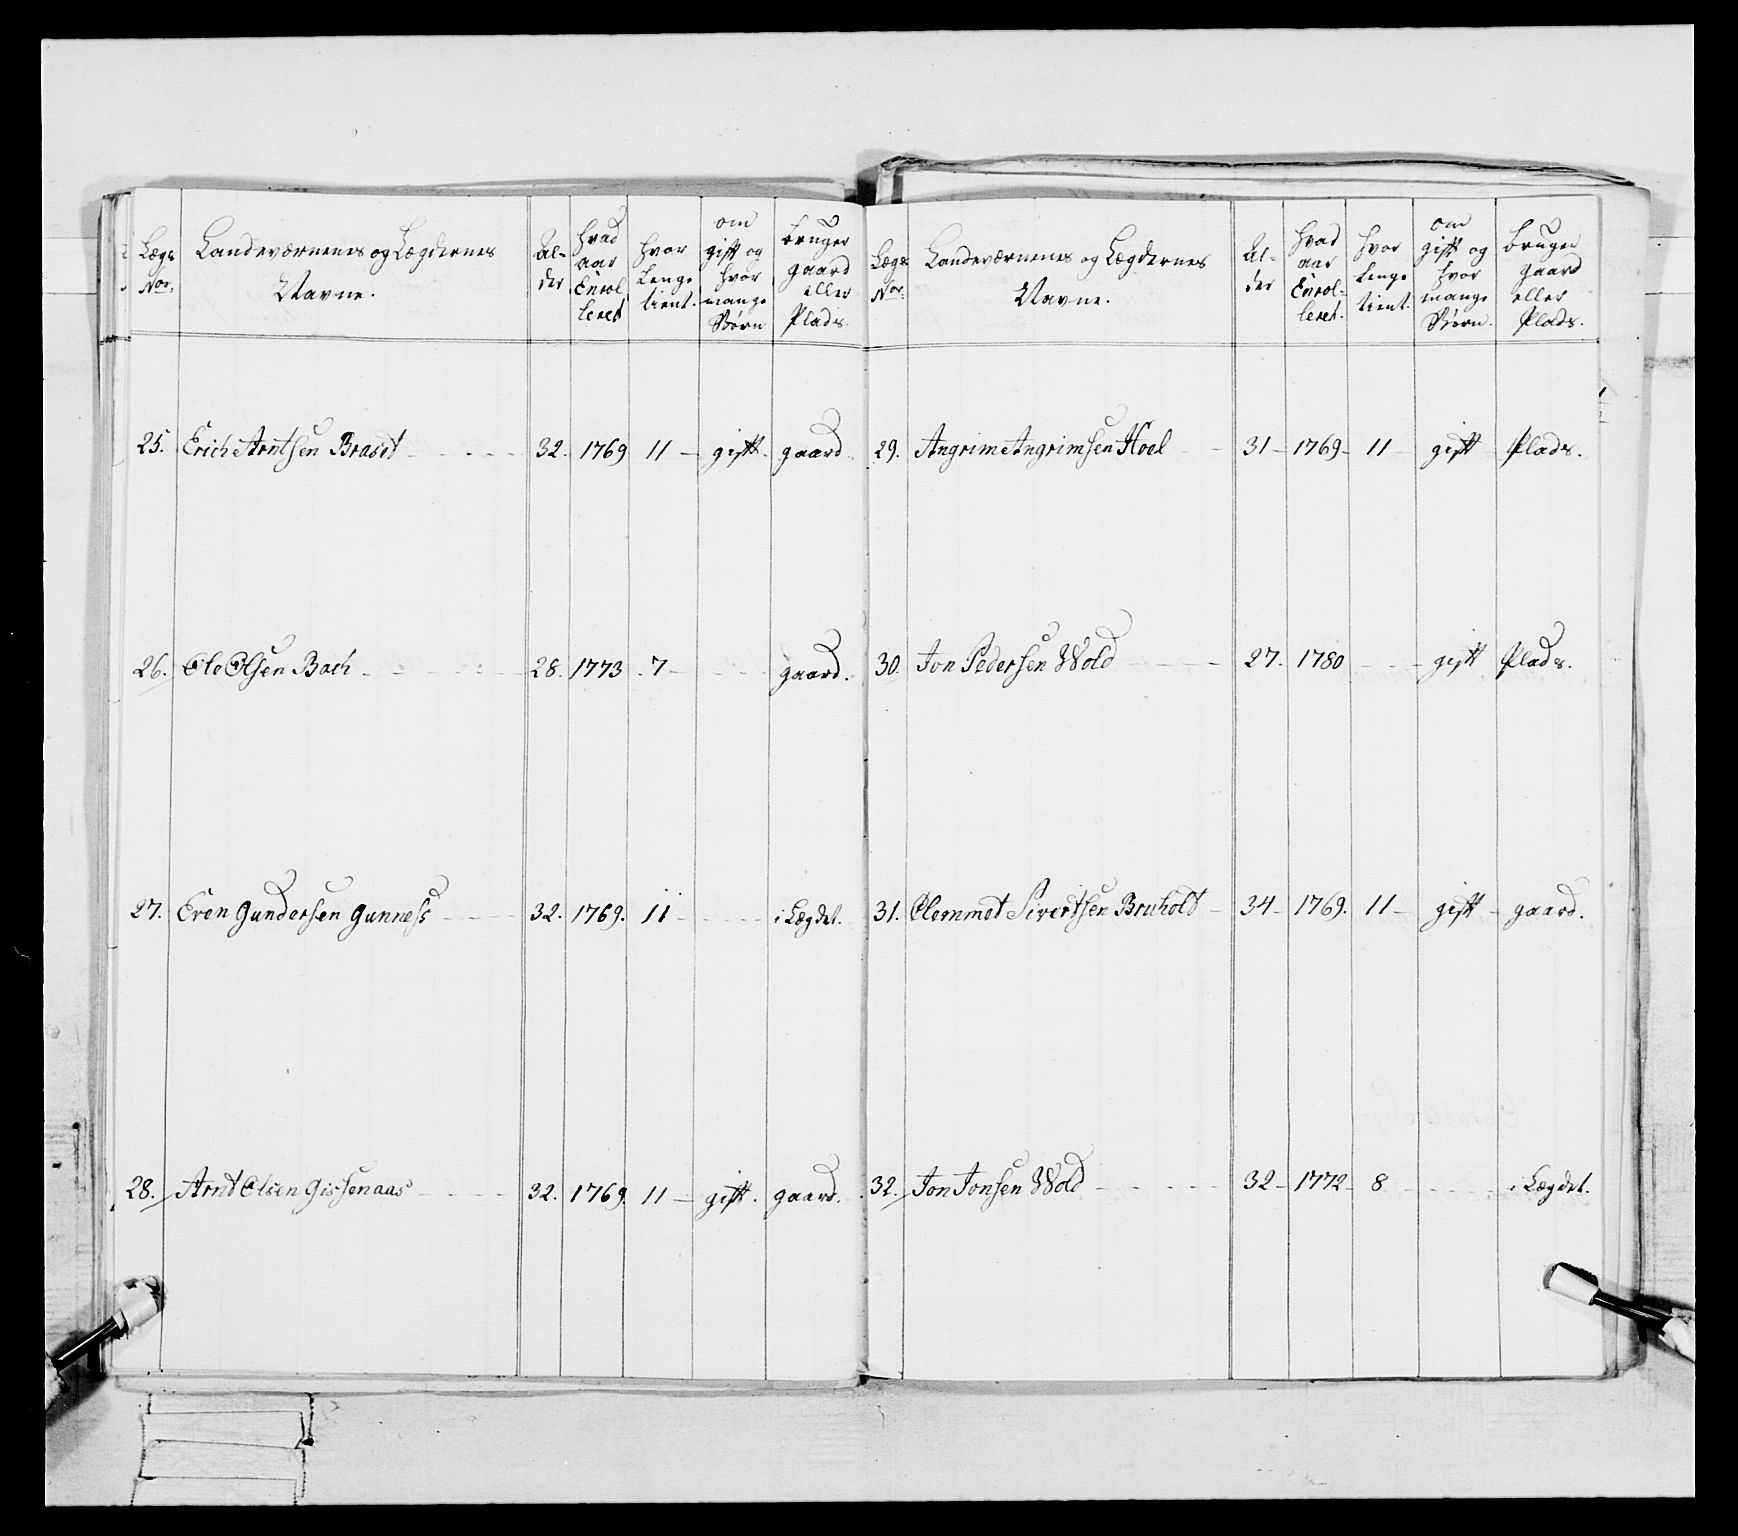 Lægs No. | Landeværnenes og Lægdernes Navne. | Al-der | hvad aar Enrol-leret | hvor Lenge tient. | om gift og hvor mange Børn | bruger gaard eller Plads.
25. Erich Arntsen Braset 32. 1769 11 gift. gaard
26. Ole Olsen Bach 28. 1773 7 gaard.
27. Even Gundersen Gunness 32. 1769. 11 i Lægdet.
28. Arnt Olsen Gissenaas 32. 1769. 11 gift. gaard.
Lægs No. | Landeværnenes og Lægdernes Navne. | Al-der | hvad aar Enrol-leret. | hvor Lenge tient. | om gift og hvor mange Børn. | bruger gaard eller Plads.
29. Angrim Angrimsen Hoel 31 1769 11 gift Plads.
30. Jon Pedersen Wold 27. 1780 gift Plads.
31. Clemmet Sivertsen Bruholt 34 1769. 11 gift gaard.
32. Jon Jonsen Wold 32 1772 8 i Lægdet.